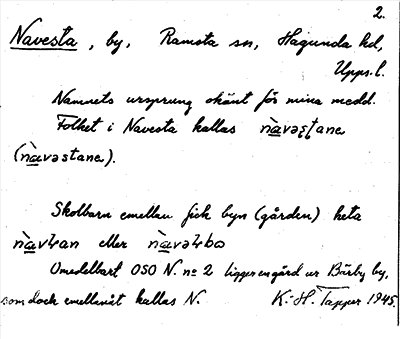 2.
Navesta, by, Ramsta sn, Hagunda hd,
Upps. l.
Namnets ursprung okänt för mina medd.
Folket i Navesta kallas
(nàvəstane).
Skolbarn emellan fick byn (gården) heta
eller
Omedelbart OSO N. nr 2 ligger en gård ur Bärby by,
som dock emellanåt kallas N. K.-H. Tapper 1945.